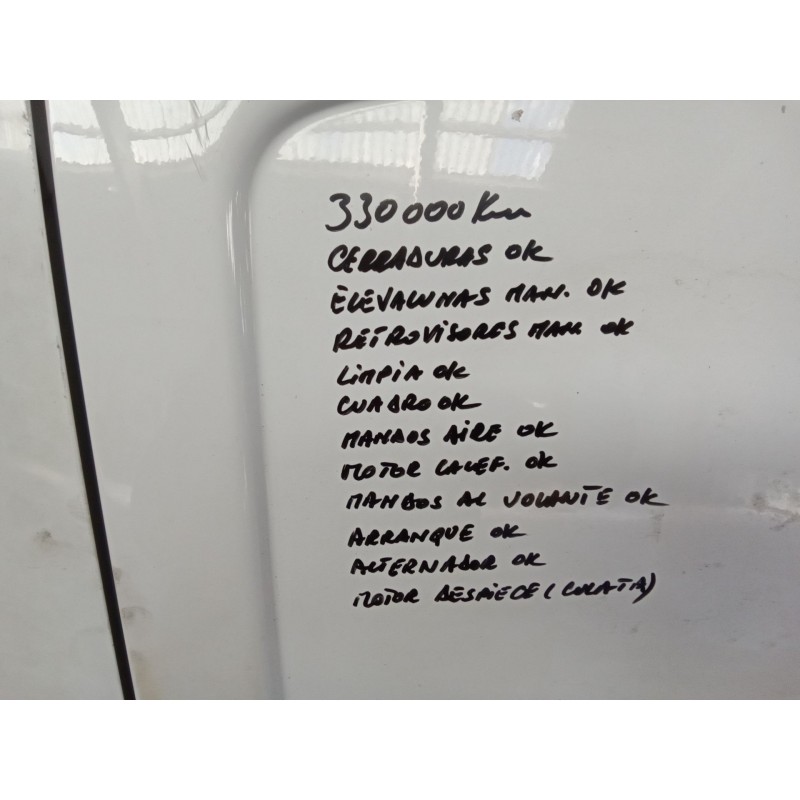 330000 Km
CERRADURAS OK
ELEVALUNAS MAN. OK
RETROVISORES MAN. OK
LIMPIA OK
CUADRO OK
MANDOS AIRE OK
MOTOR CALEF. OK
MANDOS AL VOLANTE OK
ARRANQUE OK
ALTERNADOR OK
MOTOR DESPIECE (CULATA)